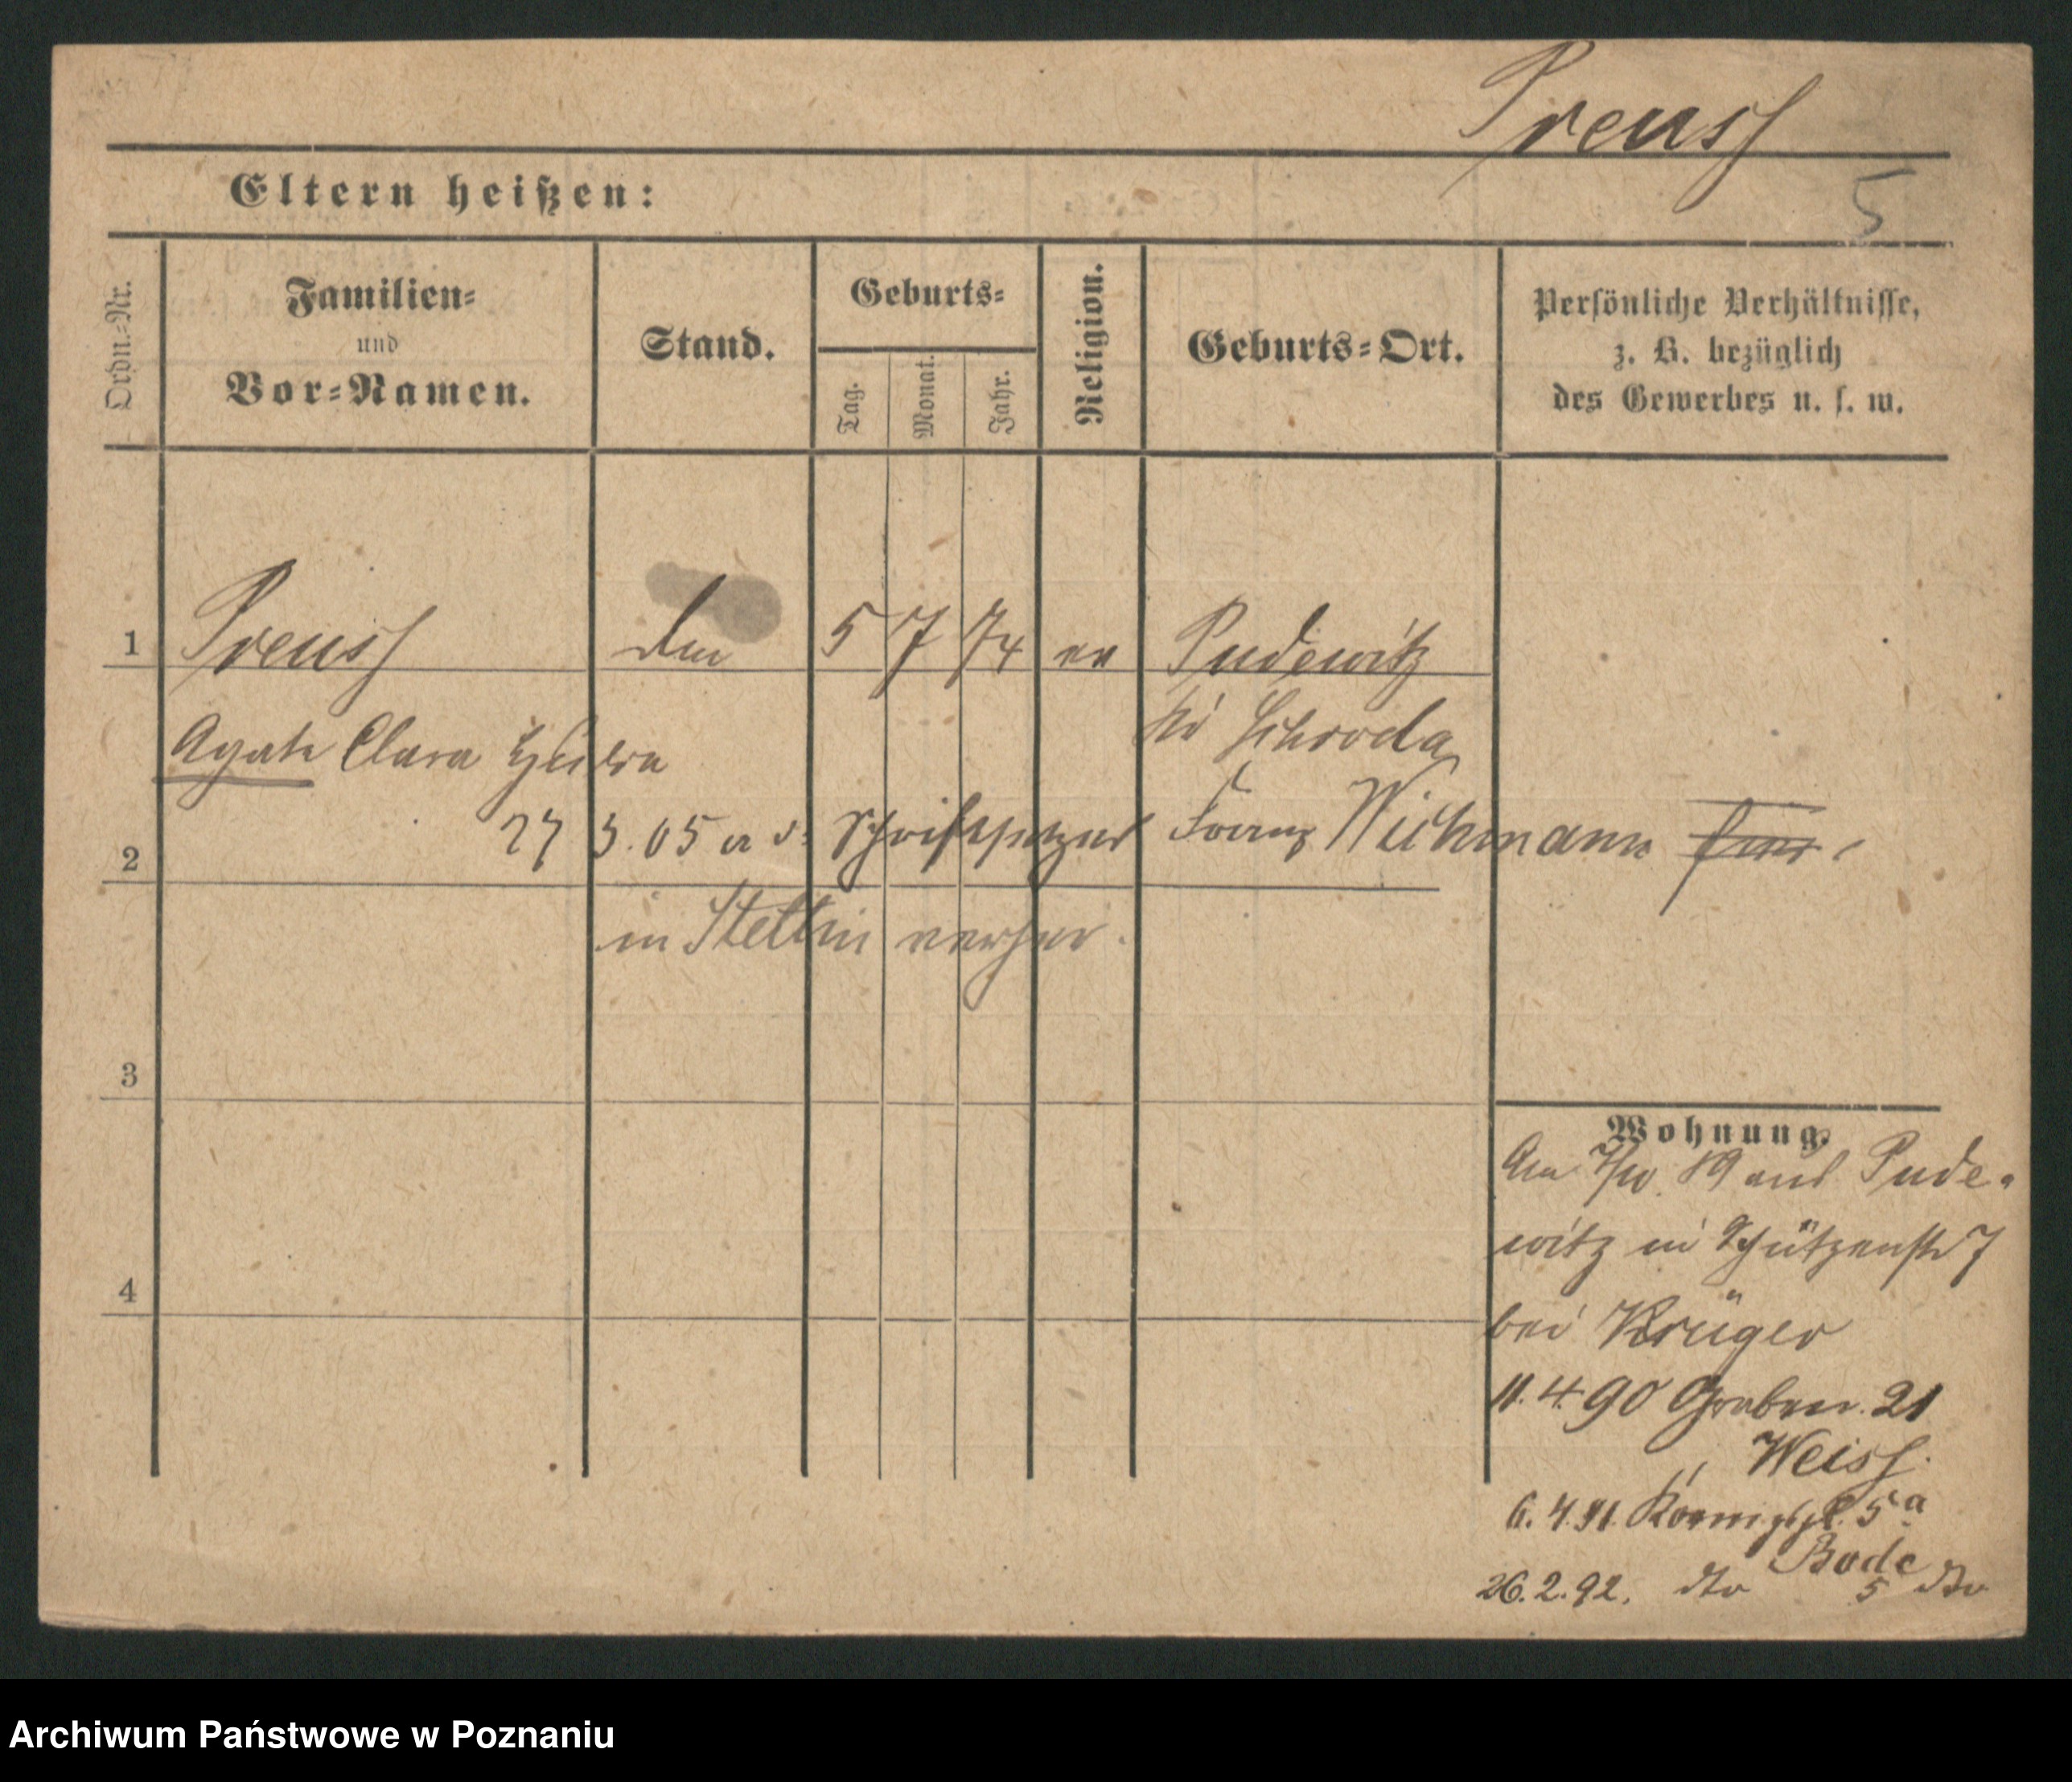 Preuss
Eltern heißen:
5
Ordn.-Nr.
Familien-
und
Vor-Namen.
Stand.
Geburts-
Tag.
Monat.
Jahr.
Religion.
Geburts-Ort.
Persönliche Verhältnisse,
z. B. bezüglich
des Gewerbes u. s. w.
1 Preuss 5 7 74 ev Pudewitz
Kr Schroda
Agate Clara
2 27 3. 05 a d. Schriftsetzer Franz Wichmann
in Stettin verheir.
3
4
Wohnung.
Am 7/10. 89 aus Pude-
witz in Schützenstr 7
bei Krüger
11. 4. 90 Graben. 21
Weiss.
6. 4. 91. Koenigspl. 5a
Bode
26. 2. 92. dto 5 dto
Archiwum Państwowe w Poznaniu